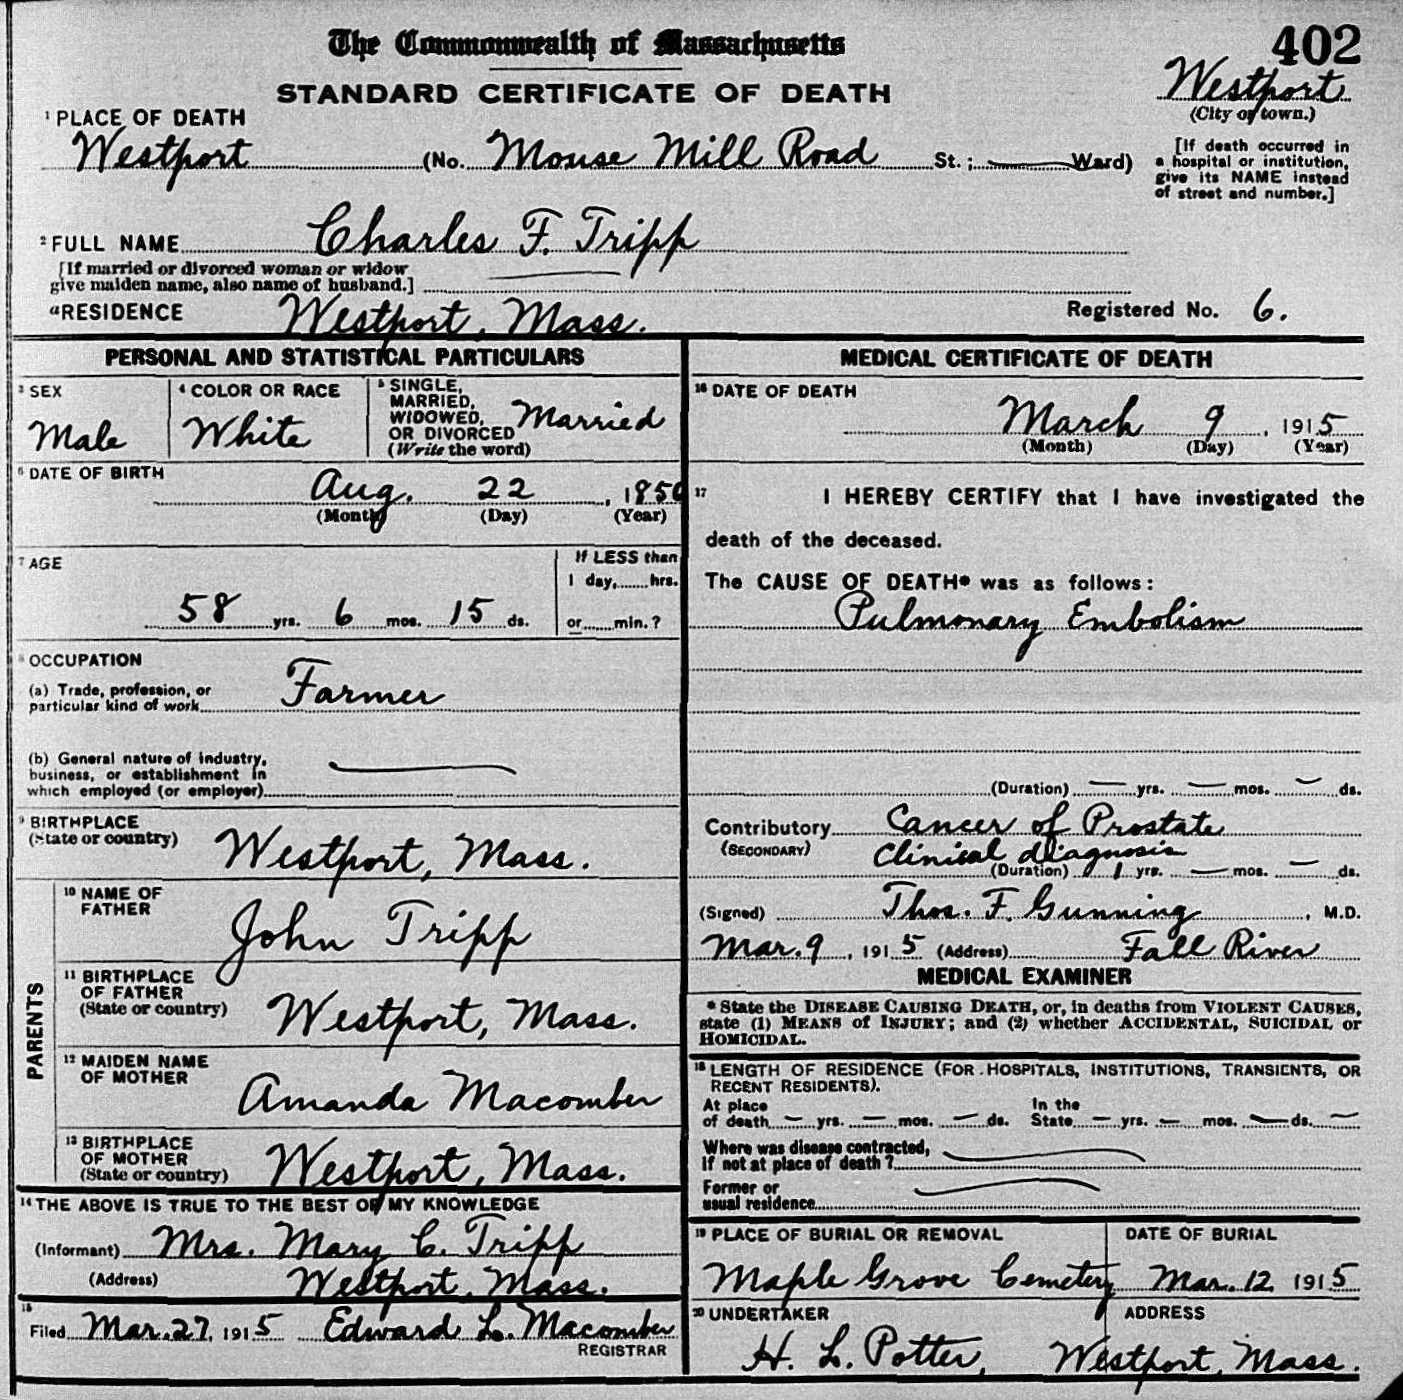 The Commonwealth of Massachusetts
402
STANDARD CERTIFICATE OF DEATH
Westport
(City or town.)
1 PLACE OF DEATH
Westport (No. Mouse Mill Road St.; Ward)
[If death occurred in
a hospital or institution,
give its NAME instead
of street and number.]
2 FULL NAME Charles F. Tripp
[If married or divorced woman or widow
give maiden name, also name of husband.]
a RESIDENCE Westport, Mass.
Registered No. 6.
PERSONAL AND STATISTICAL PARTICULARS
3 SEX
Male
4 COLOR OR RACE
White
5 SINGLE,
MARRIED,
WIDOWED,
OR DIVORCED
(Write the word)
Married
6 DATE OF BIRTH
Aug. 22, 1856
(Month) (Day) (Year)
7 AGE
58 yrs. 6 mos. 15 ds.
If LESS than
1 day, hrs.
or min.?
8 OCCUPATION
(a) Trade, profession, or
particular kind of work Farmer
(b) General nature of industry,
business, or establishment in
which employed (or employer)
9 BIRTHPLACE
(State or country) Westport, Mass.
PARENTS
10 NAME OF
FATHER
John Tripp
11 BIRTHPLACE
OF FATHER
(State or country) Westport, Mass.
12 MAIDEN NAME
OF MOTHER
Amanda Macomber
13 BIRTHPLACE
OF MOTHER
(State or country) Westport, Mass.
14 THE ABOVE IS TRUE TO THE BEST OF MY KNOWLEDGE
(Informant) Mrs. Mary C. Tripp
(Address) Westport, Mass.
15
Filed Mar. 27, 1915 Edward L. Macomber
REGISTRAR
MEDICAL CERTIFICATE OF DEATH
16 DATE OF DEATH
March 9, 1915
(Month) (Day) (Year)
17 I HEREBY CERTIFY that I have investigated the
death of the deceased.
The CAUSE OF DEATH* was as follows:
Pulmonary Embolism
(Duration) — yrs. — mos. — ds.
Contributory Cancer of Prostate
(SECONDARY) Clinical diagnosis
(Duration) 1 yrs. — mos. — ds.
(Signed) Thos. F. Gunning, M.D.
Mar. 9, 1915 (Address) Fall River
MEDICAL EXAMINER
* State the DISEASE CAUSING DEATH, or, in deaths from VIOLENT CAUSES,
state (1) MEANS of INJURY; and (2) whether ACCIDENTAL, SUICIDAL or
HOMICIDAL.
18 LENGTH OF RESIDENCE (FOR HOSPITALS, INSTITUTIONS, TRANSIENTS, OR
RECENT RESIDENTS).
At place
of death — yrs. — mos. — ds.
In the
State — yrs. — mos. — ds. —
Where was disease contracted,
If not at place of death?
Former or
usual residence
19 PLACE OF BURIAL OR REMOVAL
Maple Grove Cemetery
DATE OF BURIAL
Mar. 12, 1915
20 UNDERTAKER
H. L. Potter,
ADDRESS
Westport, Mass.